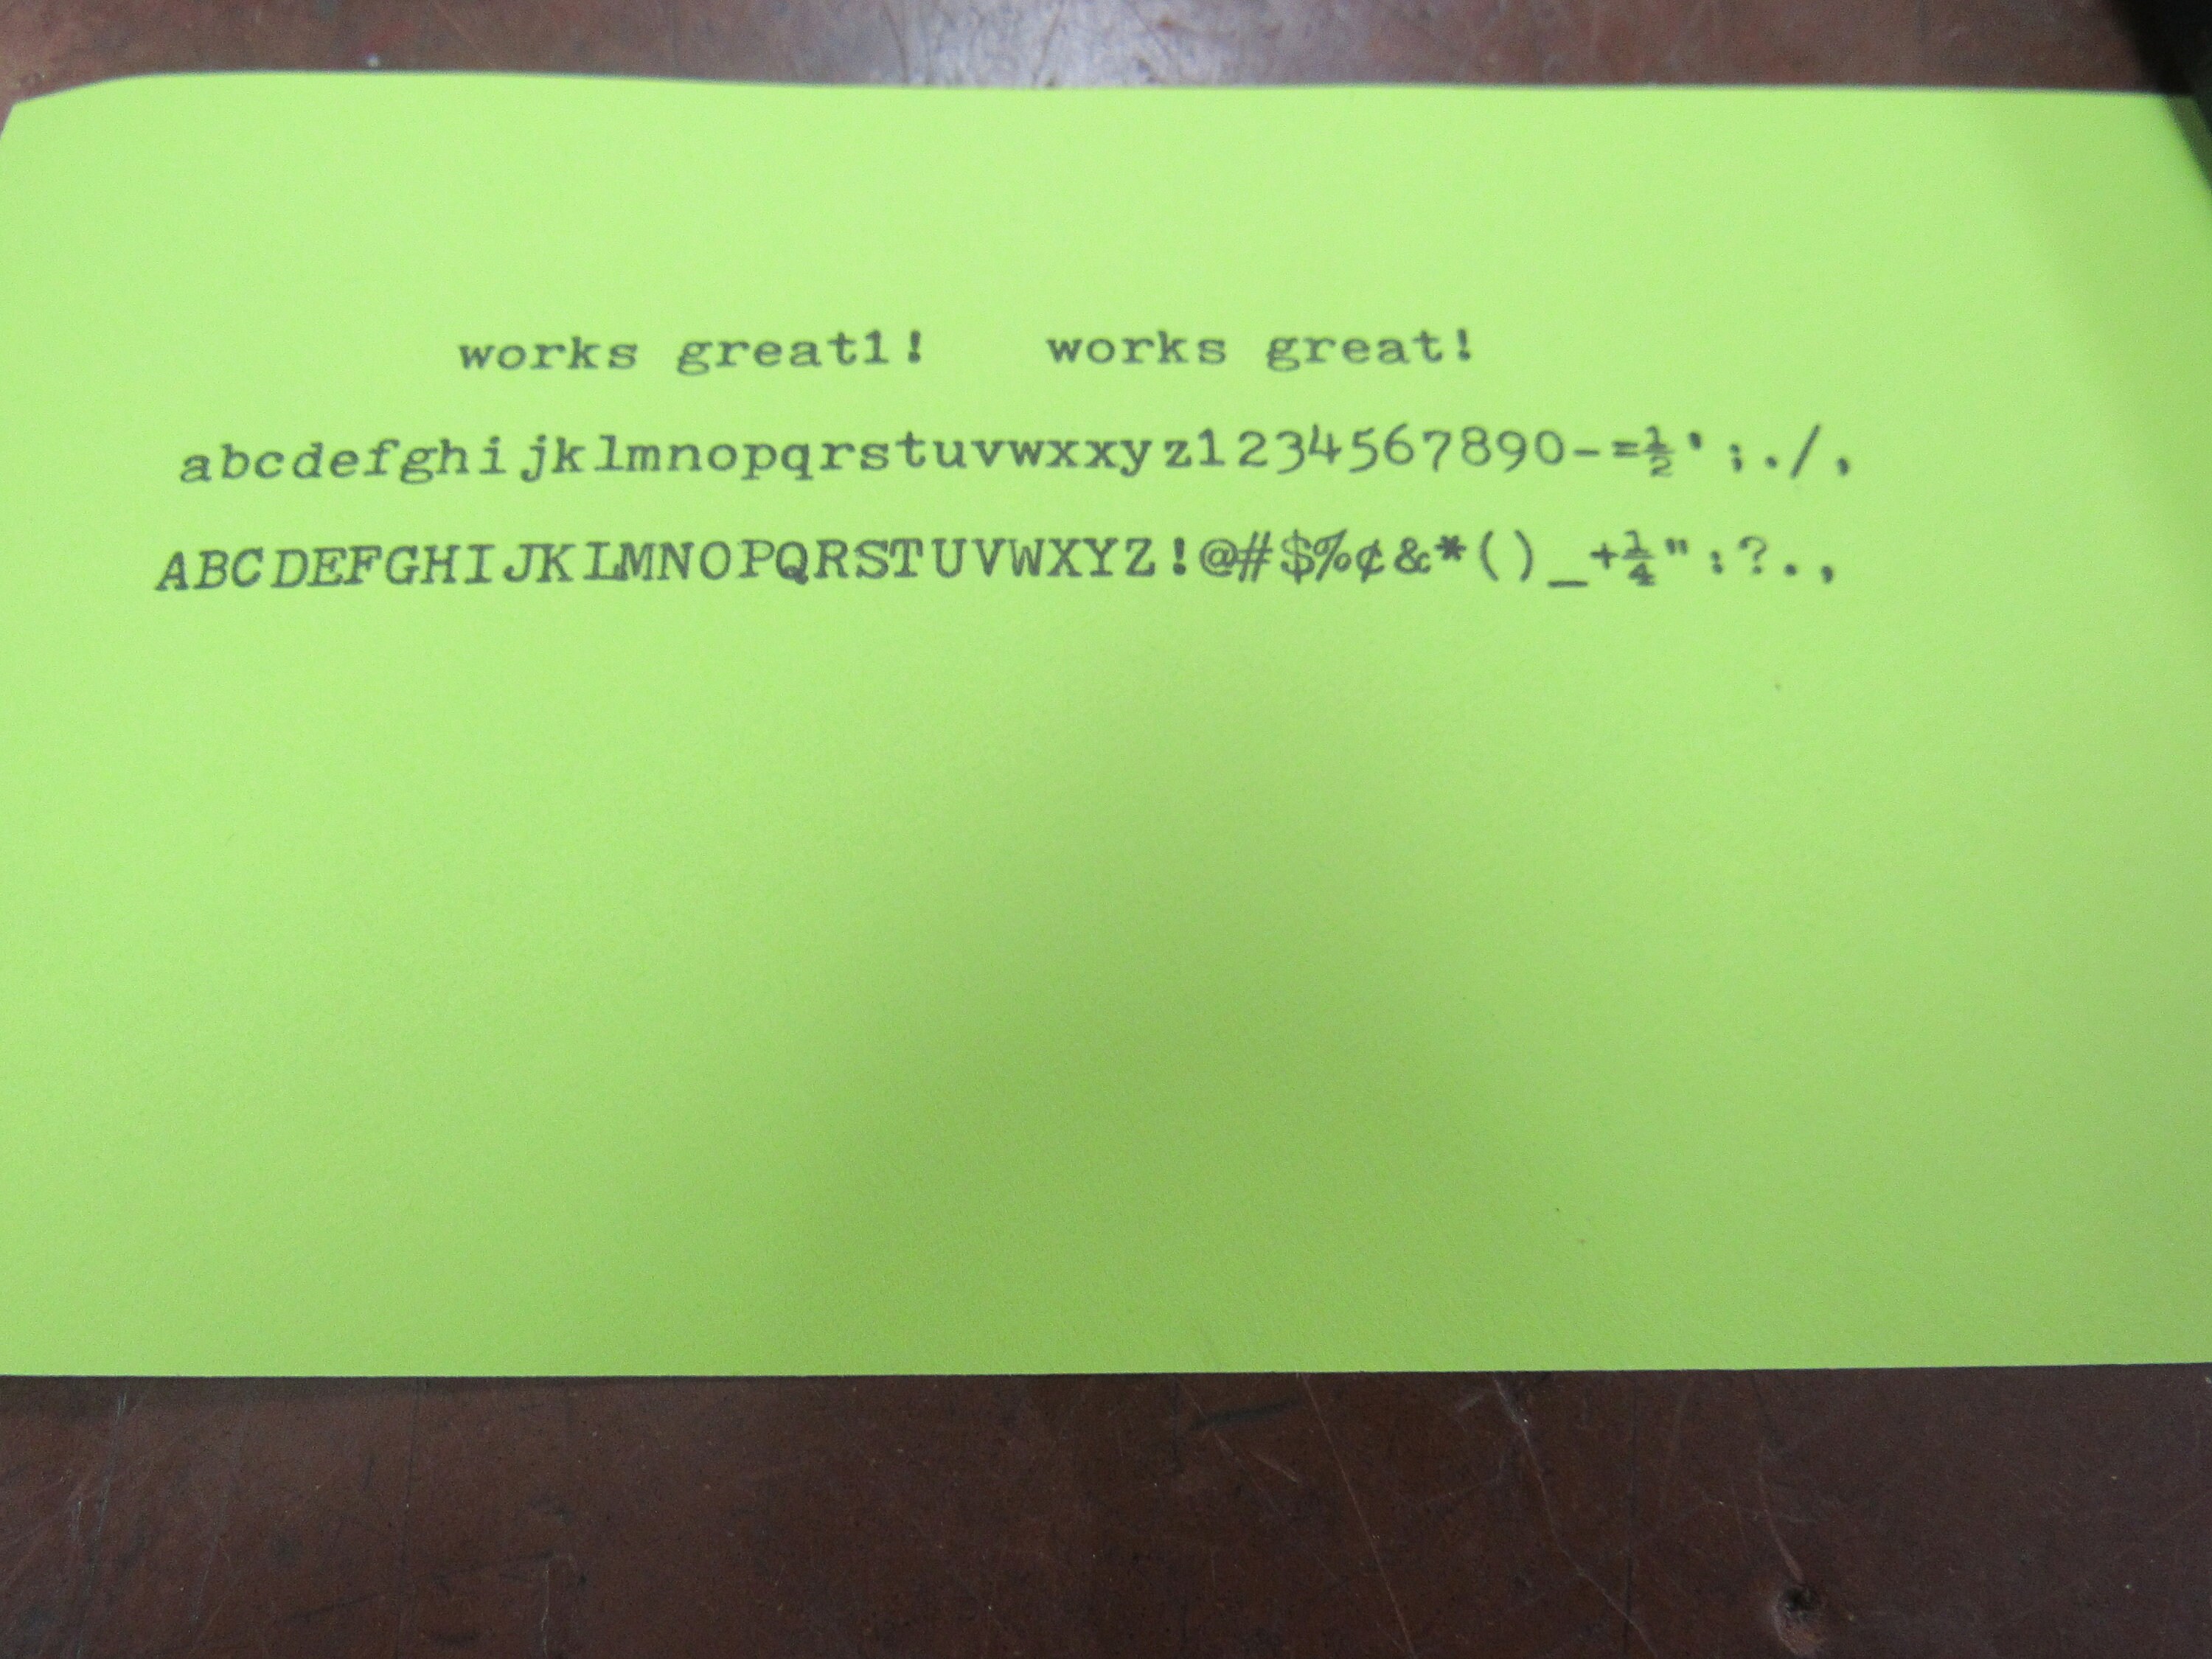 works great1!   works great!
abcdefghijklmnopqrstuvwxxyz1234567890-=½';./,
ABCDEFGHIJKLMNOPQRSTUVWXYZ!@#$%¢&*()_+¼":?.,